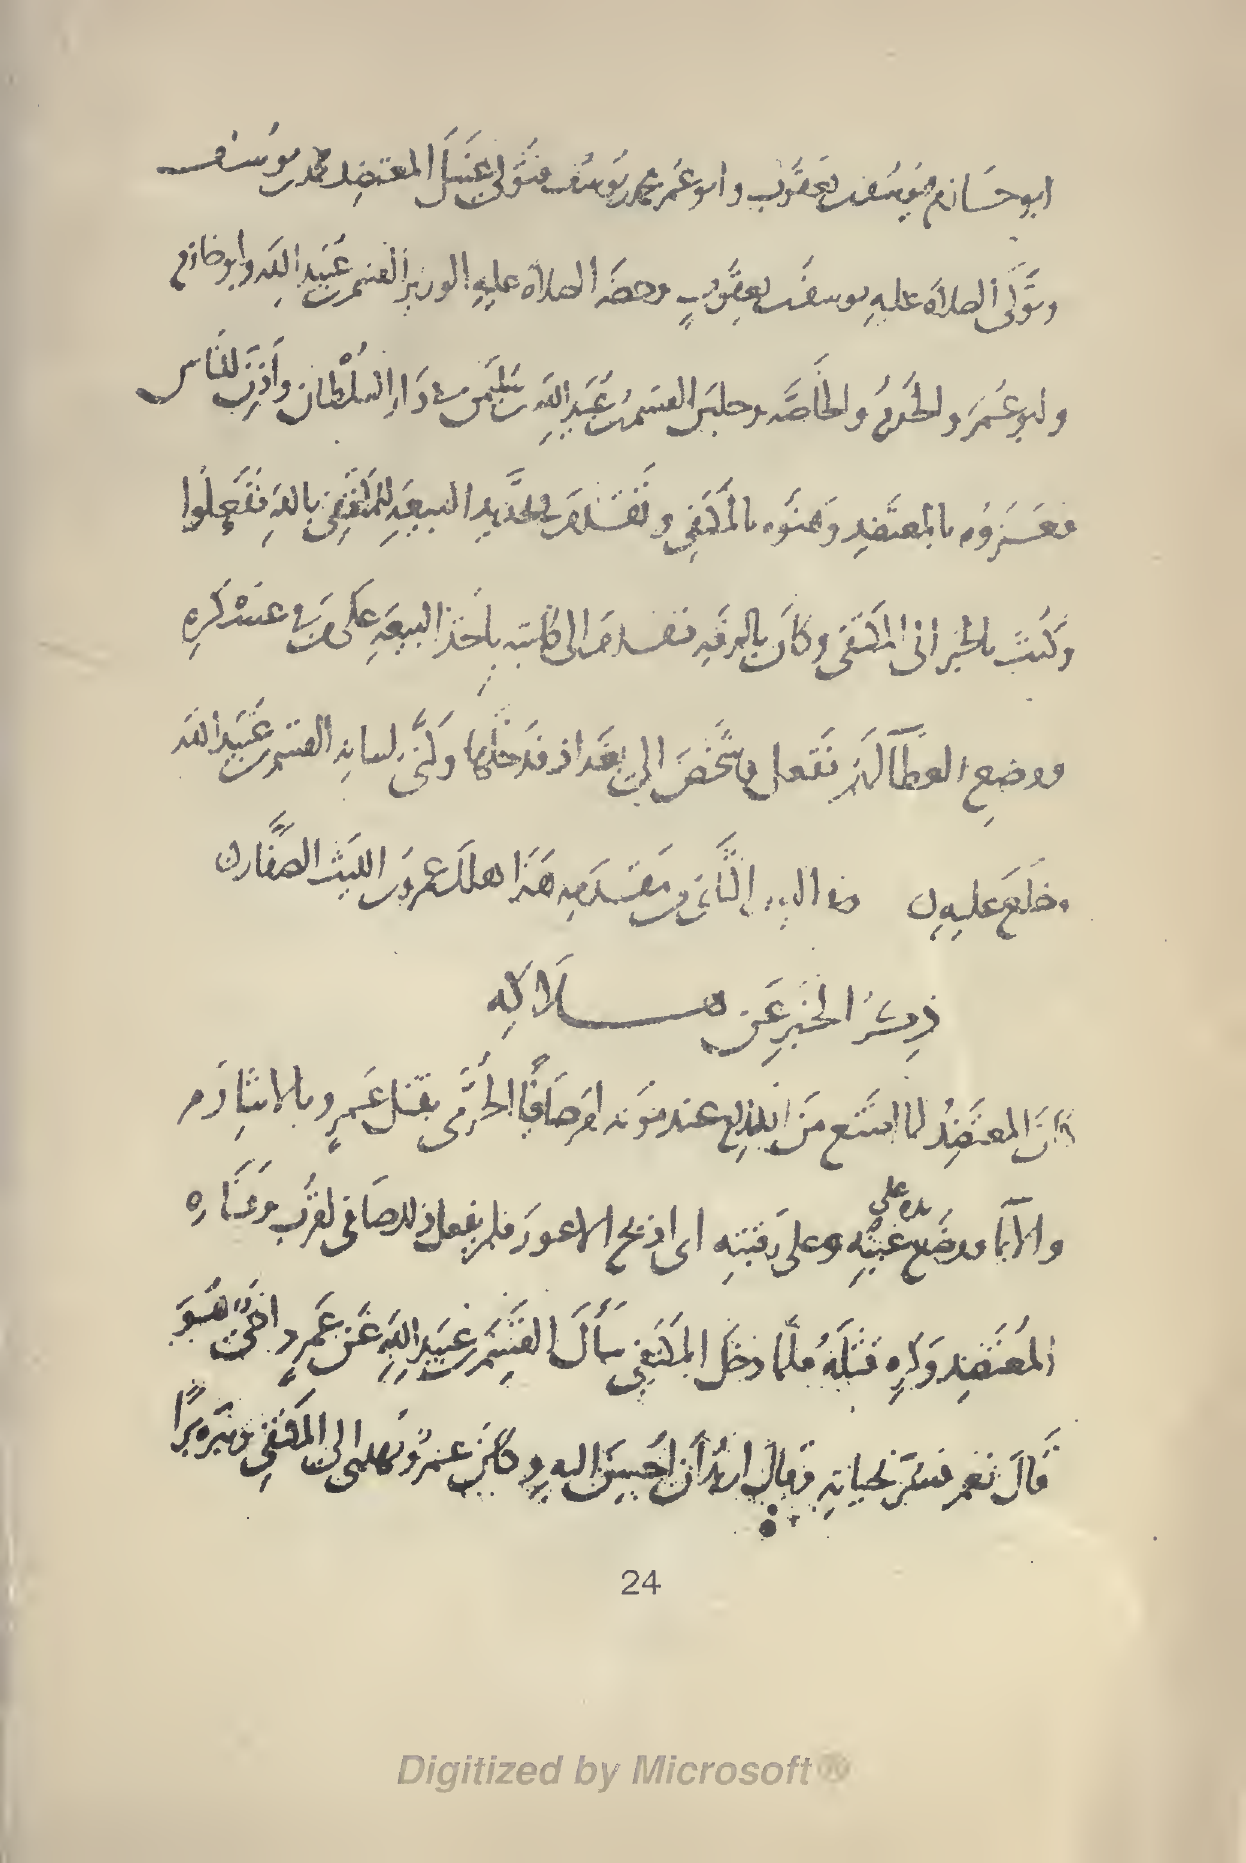 ابو حازم ويوسف بن يعقوب وابو عمر محمد بن يوسف فتولى غسل المعتضد محمد بن يوسف
وتولى الصلاة عليه يوسف بن يعقوب وحضر الصلاة عليه الوزير القسم بن عبيد الله وابو خازم
وابو عمر والحرم والخاصة وجلس القسم بن عبيد الله بن سليمن في دار السلطان واذن للناس
فعزوه بالمعتضد وهنوه بالمكتفي وتقدم في تجديد البيعة للمكتفي بالله ففعلوا
وكتب بالخبر الى المكتفي وكان بالرقة فتقدم الى كاتبه باخذ البيعة على من في عسكره
ووضع العطآ لهم ففعل وشخص الى بغداذ فدخلها وكنى بلسانه القسم بن عبيد الله
وخلع عليه وفي اليوم الثاني من مقدمه هذا هلك عمرو بن الليث الصفار
ذكر الخبر عن هلاكه
كان المعتضد لما امتنع من الكلام عند موته امر صافيا الحرمي بقتل عمرو بالاشارة
والايما ووضع يده على عينه وعلى رقبته اى اذبح الاعور فلم يفعل ذلك صافى لقرب وفاة
المعتضد وكره قتله فلما دخل المكتفي سأل القسم بن عبيد الله عن عمرو احي هو
قال نعم فسر بحياته وقال اريد ان احسن اليه وكان عمرو يهدى الى المكتفي ويبره برا
24
Digitized by Microsoft®